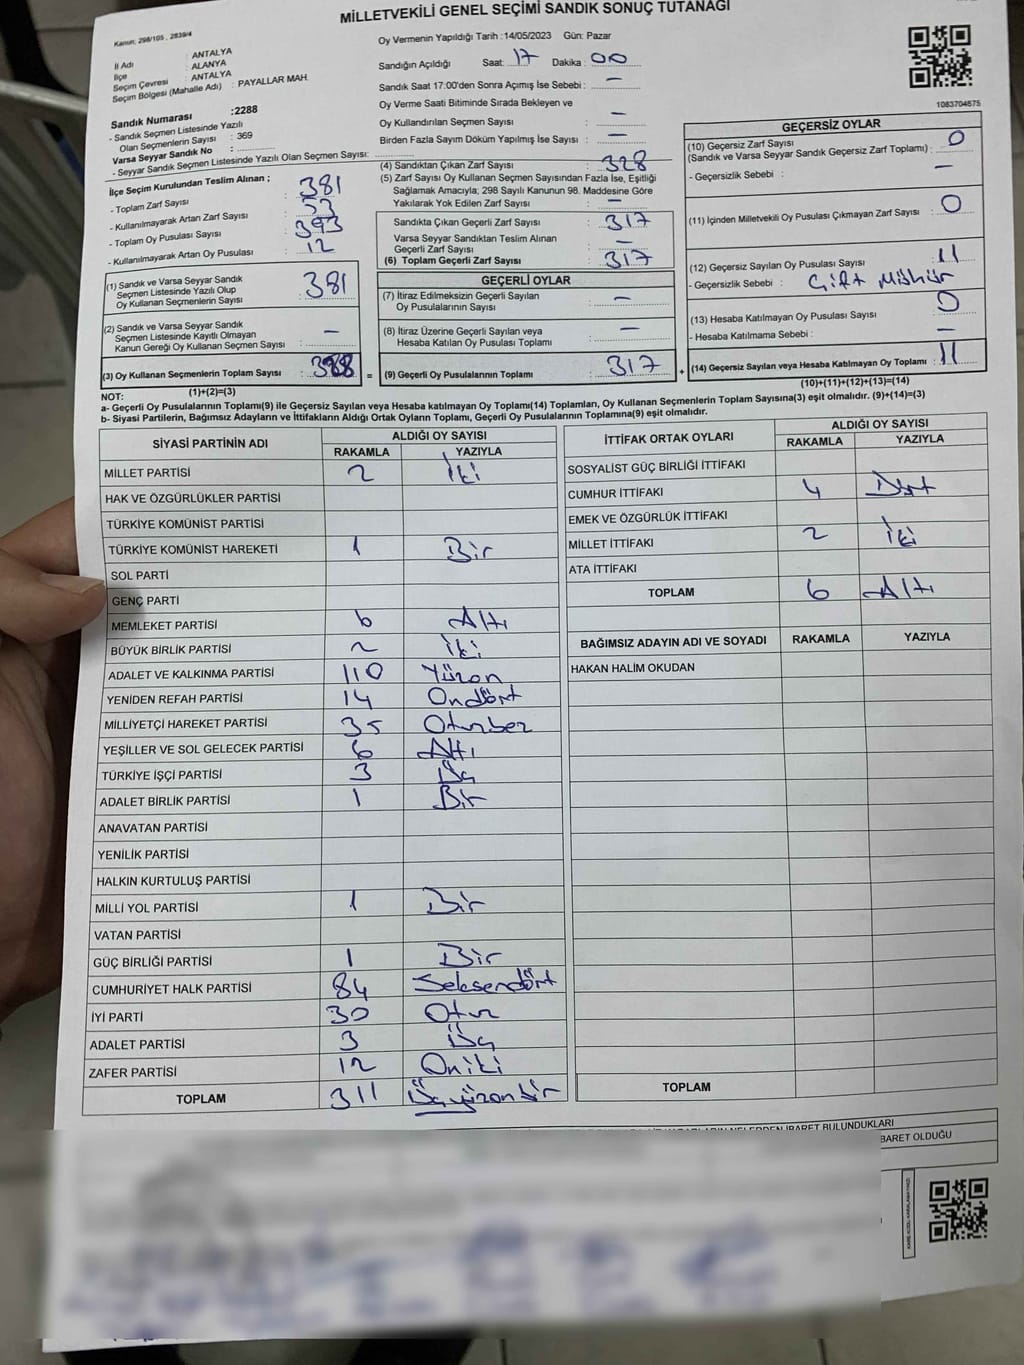 MİLLETVEKİLİ GENEL SEÇİMİ SANDIK SONUÇ TUTANAĞI
Kanun: 298/105 , 2839/4
İl Adı : ANTALYA
İlçe : ALANYA
Seçim Çevresi : ANTALYA
Seçim Bölgesi (Mahalle Adı) : PAYALLAR MAH.
Sandık Numarası :2288
- Sandık Seçmen Listesinde Yazılı
Olan Seçmenlerin Sayısı : 369
Varsa Seyyar Sandık No :
- Seyyar Sandık Seçmen Listesinde Yazılı Olan Seçmen Sayısı:
İlçe Seçim Kurulundan Teslim Alınan ;
- Toplam Zarf Sayısı : 381
- Kullanılmayarak Artan Zarf Sayısı : 53
- Toplam Oy Pusulası Sayısı : 393
- Kullanılmayarak Artan Oy Pusulası : 12
(1) Sandık ve Varsa Seyyar Sandık
Seçmen Listesinde Yazılı Olup
Oy Kullanan Seçmenlerin Sayısı : 381
(2) Sandık ve Varsa Seyyar Sandık
Seçmen Listesinde Kayıtlı Olmayan
Kanun Gereği Oy Kullanan Seçmen Sayısı : —
(3) Oy Kullanan Seçmenlerin Toplam Sayısı : 328 =
(1)+(2)=(3)
Oy Vermenin Yapıldığı Tarih :14/05/2023 Gün: Pazar
Sandığın Açıldığı Saat: 17 Dakika : 00
Sandık Saat 17:00'den Sonra Açılmış İse Sebebi : —
Oy Verme Saati Bitiminde Sırada Bekleyen ve
Oy Kullandırılan Seçmen Sayısı : —
Birden Fazla Sayım Döküm Yapılmış İse Sayısı : —
(4) Sandıktan Çıkan Zarf Sayısı : 328
(5) Zarf Sayısı Oy Kullanan Seçmen Sayısından Fazla İse, Eşitliği
Sağlamak Amacıyla; 298 Sayılı Kanunun 98. Maddesine Göre
Yakılarak Yok Edilen Zarf Sayısı : —
Sandıkta Çıkan Geçerli Zarf Sayısı : 317
Varsa Seyyar Sandıktan Teslim Alınan
Geçerli Zarf Sayısı : —
(6) Toplam Geçerli Zarf Sayısı : 317
GEÇERLİ OYLAR
(7) İtiraz Edilmeksizin Geçerli Sayılan
Oy Pusulalarının Sayısı : —
(8) İtiraz Üzerine Geçerli Sayılan veya
Hesaba Katılan Oy Pusulası Toplamı : —
(9) Geçerli Oy Pusulalarının Toplamı : 317 +
1083704675
GEÇERSİZ OYLAR
(10) Geçersiz Zarf Sayısı : 0
(Sandık ve Varsa Seyyar Sandık Geçersiz Zarf Toplamı)
- Geçersizlik Sebebi : —
(11) İçinden Milletvekili Oy Pusulası Çıkmayan Zarf Sayısı : 0
(12) Geçersiz Sayılan Oy Pusulası Sayısı : 11
- Geçersizlik Sebebi : Çift Mühür
(13) Hesaba Katılmayan Oy Pusulası Sayısı : 0
- Hesaba Katılmama Sebebi : —
(14) Geçersiz Sayılan veya Hesaba Katılmayan Oy Toplamı : 11
(10)+(11)+(12)+(13)=(14)
NOT:
a- Geçerli Oy Pusulalarının Toplamı(9) ile Geçersiz Sayılan veya Hesaba katılmayan Oy Toplamı(14) Toplamları, Oy Kullanan Seçmenlerin Toplam Sayısına(3) eşit olmalıdır. (9)+(14)=(3)
b- Siyasi Partilerin, Bağımsız Adayların ve İttifakların Aldığı Ortak Oyların Toplamı, Geçerli Oy Pusulalarının Toplamına(9) eşit olmalıdır.
SİYASİ PARTİNİN ADI ALDIĞI OY SAYISI
RAKAMLA YAZIYLA
MİLLET PARTİSİ 2 İki
HAK VE ÖZGÜRLÜKLER PARTİSİ
TÜRKİYE KOMÜNİST PARTİSİ
TÜRKİYE KOMÜNİST HAREKETİ 1 Bir
SOL PARTİ
GENÇ PARTİ
MEMLEKET PARTİSİ 6 Altı
BÜYÜK BİRLİK PARTİSİ 2 İki
ADALET VE KALKINMA PARTİSİ 110 Yüzon
YENİDEN REFAH PARTİSİ 14 Ondört
MİLLİYETÇİ HAREKET PARTİSİ 35 Otuzbeş
YEŞİLLER VE SOL GELECEK PARTİSİ 6 Altı
TÜRKİYE İŞÇİ PARTİSİ 3 Üç
ADALET BİRLİK PARTİSİ 1 Bir
ANAVATAN PARTİSİ
YENİLİK PARTİSİ
HALKIN KURTULUŞ PARTİSİ
MİLLİ YOL PARTİSİ 1 Bir
VATAN PARTİSİ
GÜÇ BİRLİĞİ PARTİSİ 1 Bir
CUMHURİYET HALK PARTİSİ 84 Seksendört
İYİ PARTİ 30 Otuz
ADALET PARTİSİ 3 Üç
ZAFER PARTİSİ 12 Oniki
TOPLAM 311 Üçyüzonbir
İTTİFAK ORTAK OYLARI ALDIĞI OY SAYISI
RAKAMLA YAZIYLA
SOSYALİST GÜÇ BİRLİĞİ İTTİFAKI
CUMHUR İTTİFAKI 4 Dört
EMEK VE ÖZGÜRLÜK İTTİFAKI
MİLLET İTTİFAKI 2 İki
ATA İTTİFAKI
TOPLAM 6 Altı
BAĞIMSIZ ADAYIN ADI VE SOYADI RAKAMLA YAZIYLA
HAKAN HALİM OKUDAN
TOPLAM
İBARET BULUNDUKLARI
BARET OLDUĞU